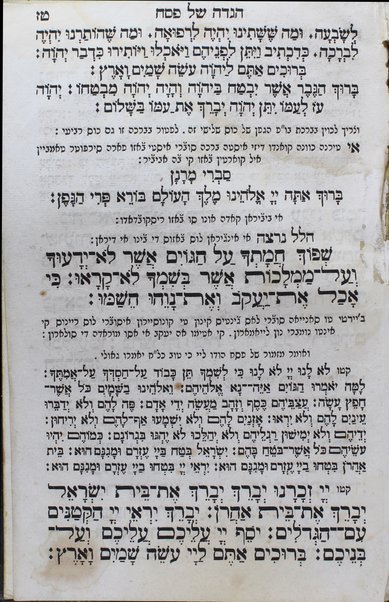 הגדה של פסח
טז
לְשָׂבְעָה. וּמַה שֶּׁשָּׁתִינוּ יִהְיֶה לִרְפוּאָה. וּמַה שֶּׁהוֹתַרְנוּ יִהְיֶה
לִבְרָכָה. כְּדִכְתִיב וַיִּתֵּן לִפְנֵיהֶם וַיֹּאכְלוּ וַיּוֹתִירוּ כִּדְבַר יְהֹוָה:
בְּרוּכִים אַתֶּם לַיהֹוָה עֹשֵׂה שָׁמַיִם וָאָרֶץ:
בָּרוּךְ הַגֶּבֶר אֲשֶׁר יִבְטַח בַּיהֹוָה וְהָיָה יְהֹוָה מִבְטַחוֹ: יְהֹוָה
עֹז לְעַמּוֹ יִתֵּן יְהֹוָה יְבָרֵךְ אֶת עַמּוֹ בַשָּׁלוֹם:
וצריך לכוין בברכת בו"פ הגפן של כוס שלישי זה. לפטור בברכה זו גם כוס רביעי:
סַבְרִי מָרָנָן
בָּרוּךְ אַתָּה יְיָ אֱלֹהֵינוּ מֶלֶךְ הָעוֹלָם בּוֹרֵא פְּרִי הַגָּפֶן:
אי ביבֿיראן קאדה אונו סו בֿאזו ריסקובֿדאדו:
הלל נרצה
שְׁפוֹךְ חֲמָתְךָ עַל הַגּוֹיִם אֲשֶׁר לֹא־יְדָעוּךָ
וְעַל־מַמְלָכוֹת אֲשֶׁר בְּשִׁמְךָ לֹא־קָרָאוּ: כִּי
אָכַל אֶת־יַעֲקֹב וְאֶת־נָוֵהוּ הֵשַׁמּוּ:
ואומר מזמור של פסח הודו ליי כי טוב כל"ח ואומרו גאולי.
קטו לֹא לָנוּ יְיָ לֹא לָנוּ כִּי לְשִׁמְךָ תֵּן כָּבוֹד עַל־חַסְדְּךָ עַל־אֲמִתֶּךָ:
לָמָּה יֹאמְרוּ הַגּוֹיִם אַיֵּה־נָא אֱלֹהֵיהֶם: וֵאלֹהֵינוּ בַשָּׁמָיִם כֹּל אֲשֶׁר־
חָפֵץ עָשָׂה: עֲצַבֵּיהֶם כֶּסֶף וְזָהָב מַעֲשֵׂה יְדֵי אָדָם: פֶּה לָהֶם וְלֹא יְדַבֵּרוּ
עֵינַיִם לָהֶם וְלֹא יִרְאוּ: אָזְנַיִם לָהֶם וְלֹא יִשְׁמָעוּ אַף־לָהֶם וְלֹא יְרִיחוּן:
יְדֵיהֶם וְלֹא יְמִישׁוּן רַגְלֵיהֶם וְלֹא יְהַלֵּכוּ לֹא יֶהְגּוּ בִּגְרוֹנָם: כְּמוֹהֶם יִהְיוּ
עֹשֵׂיהֶם כֹּל אֲשֶׁר־בֹּטֵחַ בָּהֶם: יִשְׂרָאֵל בְּטַח בַּיְיָ עֶזְרָם וּמָגִנָּם הוּא: בֵּית
אַהֲרֹן בִּטְחוּ בַיְיָ עֶזְרָם וּמָגִנָּם הוּא: יִרְאֵי יְיָ בִּטְחוּ בַיְיָ עֶזְרָם וּמָגִנָּם הוּא:
קטו יְיָ זְכָרָנוּ יְבָרֵךְ יְבָרֵךְ אֶת־בֵּית יִשְׂרָאֵל
יְבָרֵךְ אֶת־בֵּית אַהֲרֹן: יְבָרֵךְ יִרְאֵי יְיָ הַקְּטַנִּים
עִם־הַגְּדֹלִים: יֹסֵף יְיָ עֲלֵיכֶם עֲלֵיכֶם וְעַל־
בְּנֵיכֶם: בְּרוּכִים אַתֶּם לַיְיָ עֹשֵׂה שָׁמַיִם וָאָרֶץ: